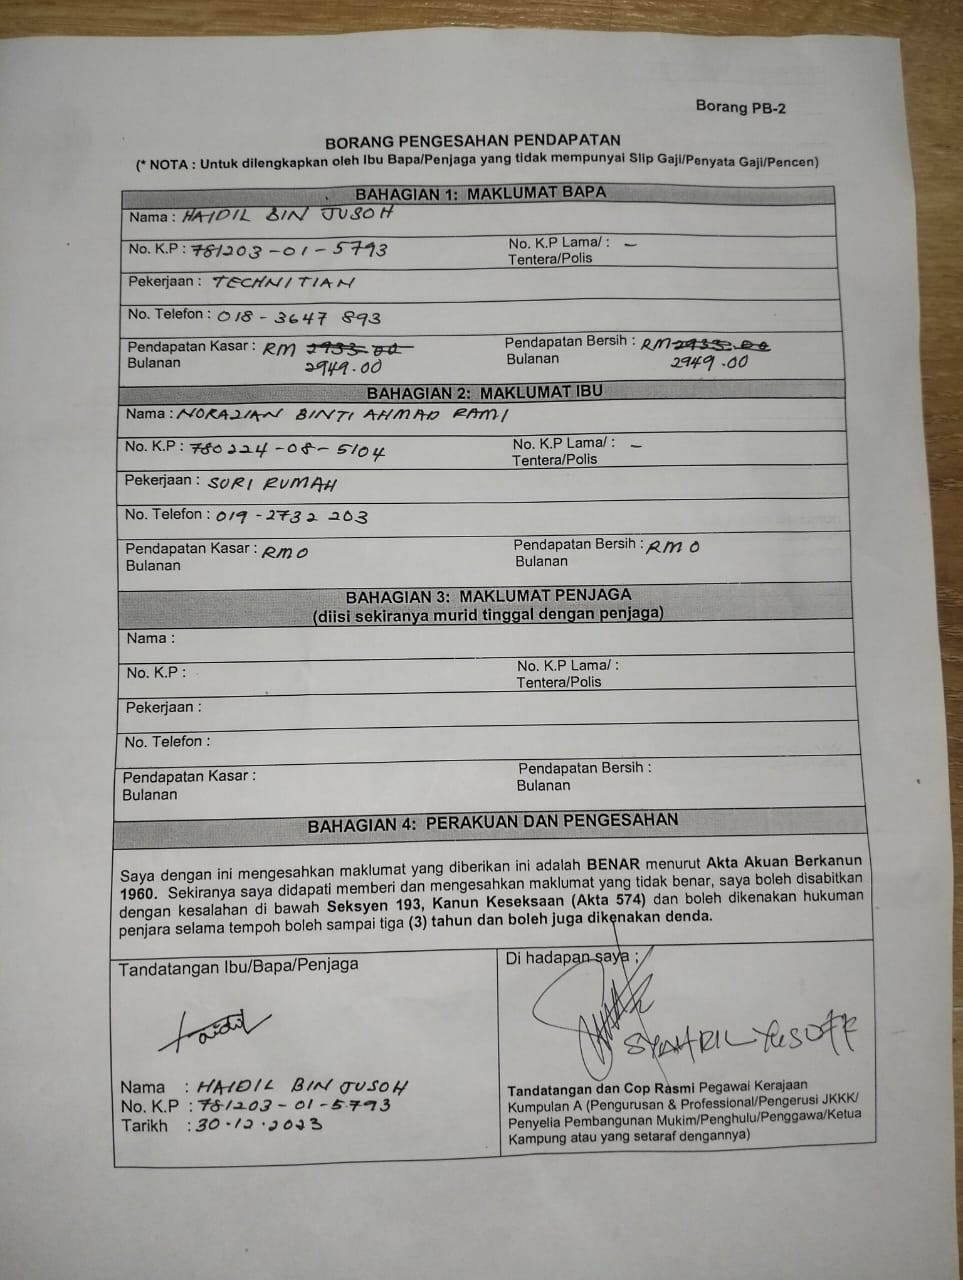 Borang PB-2
BORANG PENGESAHAN PENDAPATAN
(* NOTA : Untuk dilengkapkan oleh Ibu Bapa/Penjaga yang tidak mempunyai Slip Gaji/Penyata Gaji/Pencen)
BAHAGIAN 1: MAKLUMAT BAPA
Nama : HAIDIL BIN JUSOH
No. K.P : 781203-01-5793 No. K.P Lama/ : –
Tentera/Polis
Pekerjaan : TECHNITIAN
No. Telefon : 018-3647 893
Pendapatan Kasar : RM 2933.00 Pendapatan Bersih : RM2933.00
Bulanan 2949.00 Bulanan 2949.00
BAHAGIAN 2: MAKLUMAT IBU
Nama : NORAZIAN BINTI AHMAD RAMI
No. K.P : 780224-08-5104 No. K.P Lama/ : –
Tentera/Polis
Pekerjaan : SURI RUMAH
No. Telefon : 019-2732 203
Pendapatan Kasar : RM0 Pendapatan Bersih : RM0
Bulanan Bulanan
BAHAGIAN 3: MAKLUMAT PENJAGA
(diisi sekiranya murid tinggal dengan penjaga)
Nama :
No. K.P : No. K.P Lama/ :
Tentera/Polis
Pekerjaan :
No. Telefon :
Pendapatan Kasar : Pendapatan Bersih :
Bulanan Bulanan
BAHAGIAN 4: PERAKUAN DAN PENGESAHAN
Saya dengan ini mengesahkan maklumat yang diberikan ini adalah BENAR menurut Akta Akuan Berkanun
1960. Sekiranya saya didapati memberi dan mengesahkan maklumat yang tidak benar, saya boleh disabitkan
dengan kesalahan di bawah Seksyen 193, Kanun Keseksaan (Akta 574) dan boleh dikenakan hukuman
penjara selama tempoh boleh sampai tiga (3) tahun dan boleh juga dikenakan denda.
Tandatangan Ibu/Bapa/Penjaga
Haidil
Nama : HAIDIL BIN JUSOH
No. K.P : 781203-01-5793
Tarikh : 30.12.2023
Di hadapan saya ;
SYAHRIL YUSOFF
Tandatangan dan Cop Rasmi Pegawai Kerajaan
Kumpulan A (Pengurusan & Professional/Pengerusi JKKK/
Penyelia Pembangunan Mukim/Penghulu/Penggawa/Ketua
Kampung atau yang setaraf dengannya)